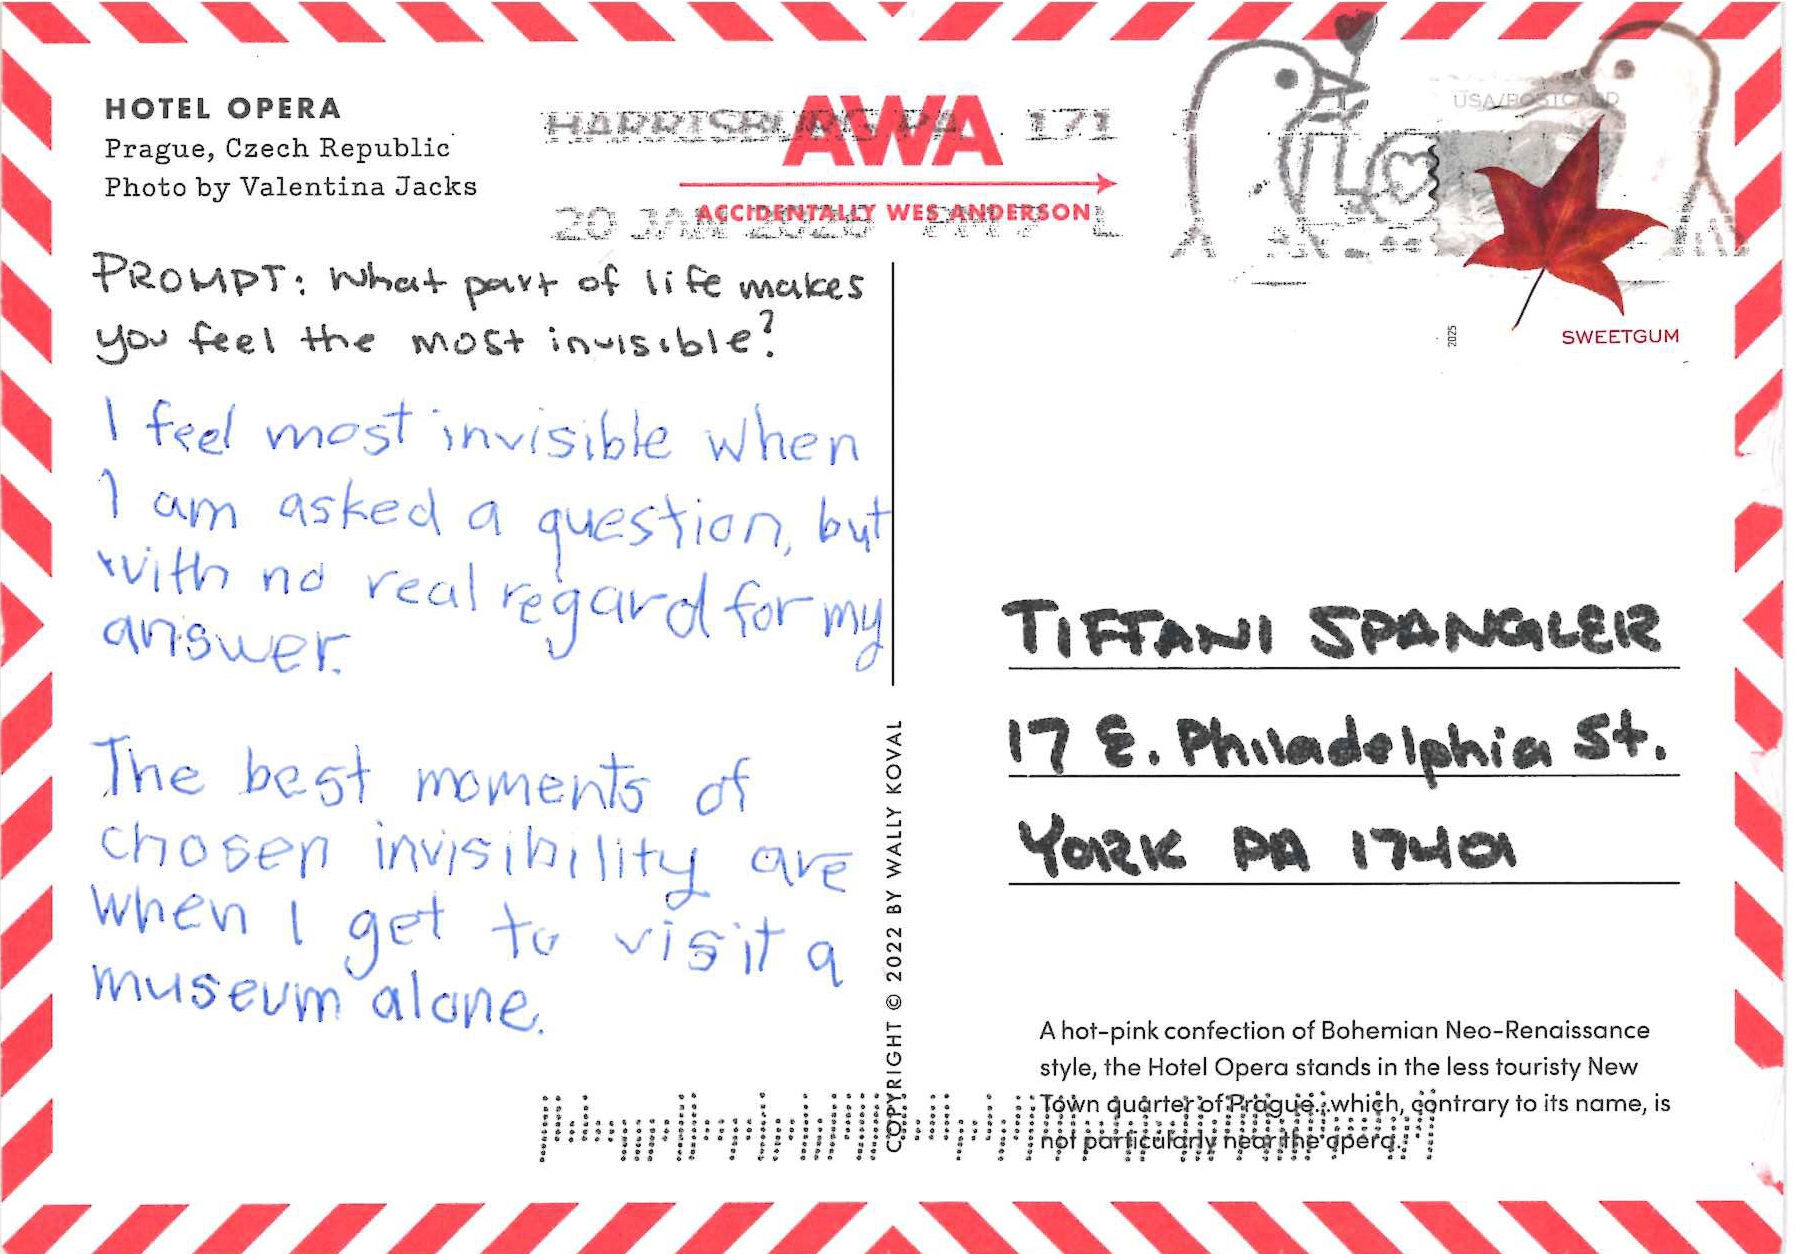 HOTEL OPERA
Prague, Czech Republic
Photo by Valentina Jacks
HARRISBURG PA 171
AWA
ACCIDENTALLY WES ANDERSON
20 JAN PM L
USA/POSTCARD
2025
SWEETGUM
PROMPT: What part of life makes
you feel the most invisible?
I feel most invisible when
I am asked a question, but
with no real regard for my
answer.
The best moments of
chosen invisibility are
when I get to visit a
museum alone.
COPYRIGHT © 2022 BY WALLY KOVAL
TIFFANI SPANGLER
17 E. Philadelphia St.
YORK PA 17401
A hot-pink confection of Bohemian Neo-Renaissance
style, the Hotel Opera stands in the less touristy New
Town quarter of Prague...which, contrary to its name, is
not particularly near the opera.